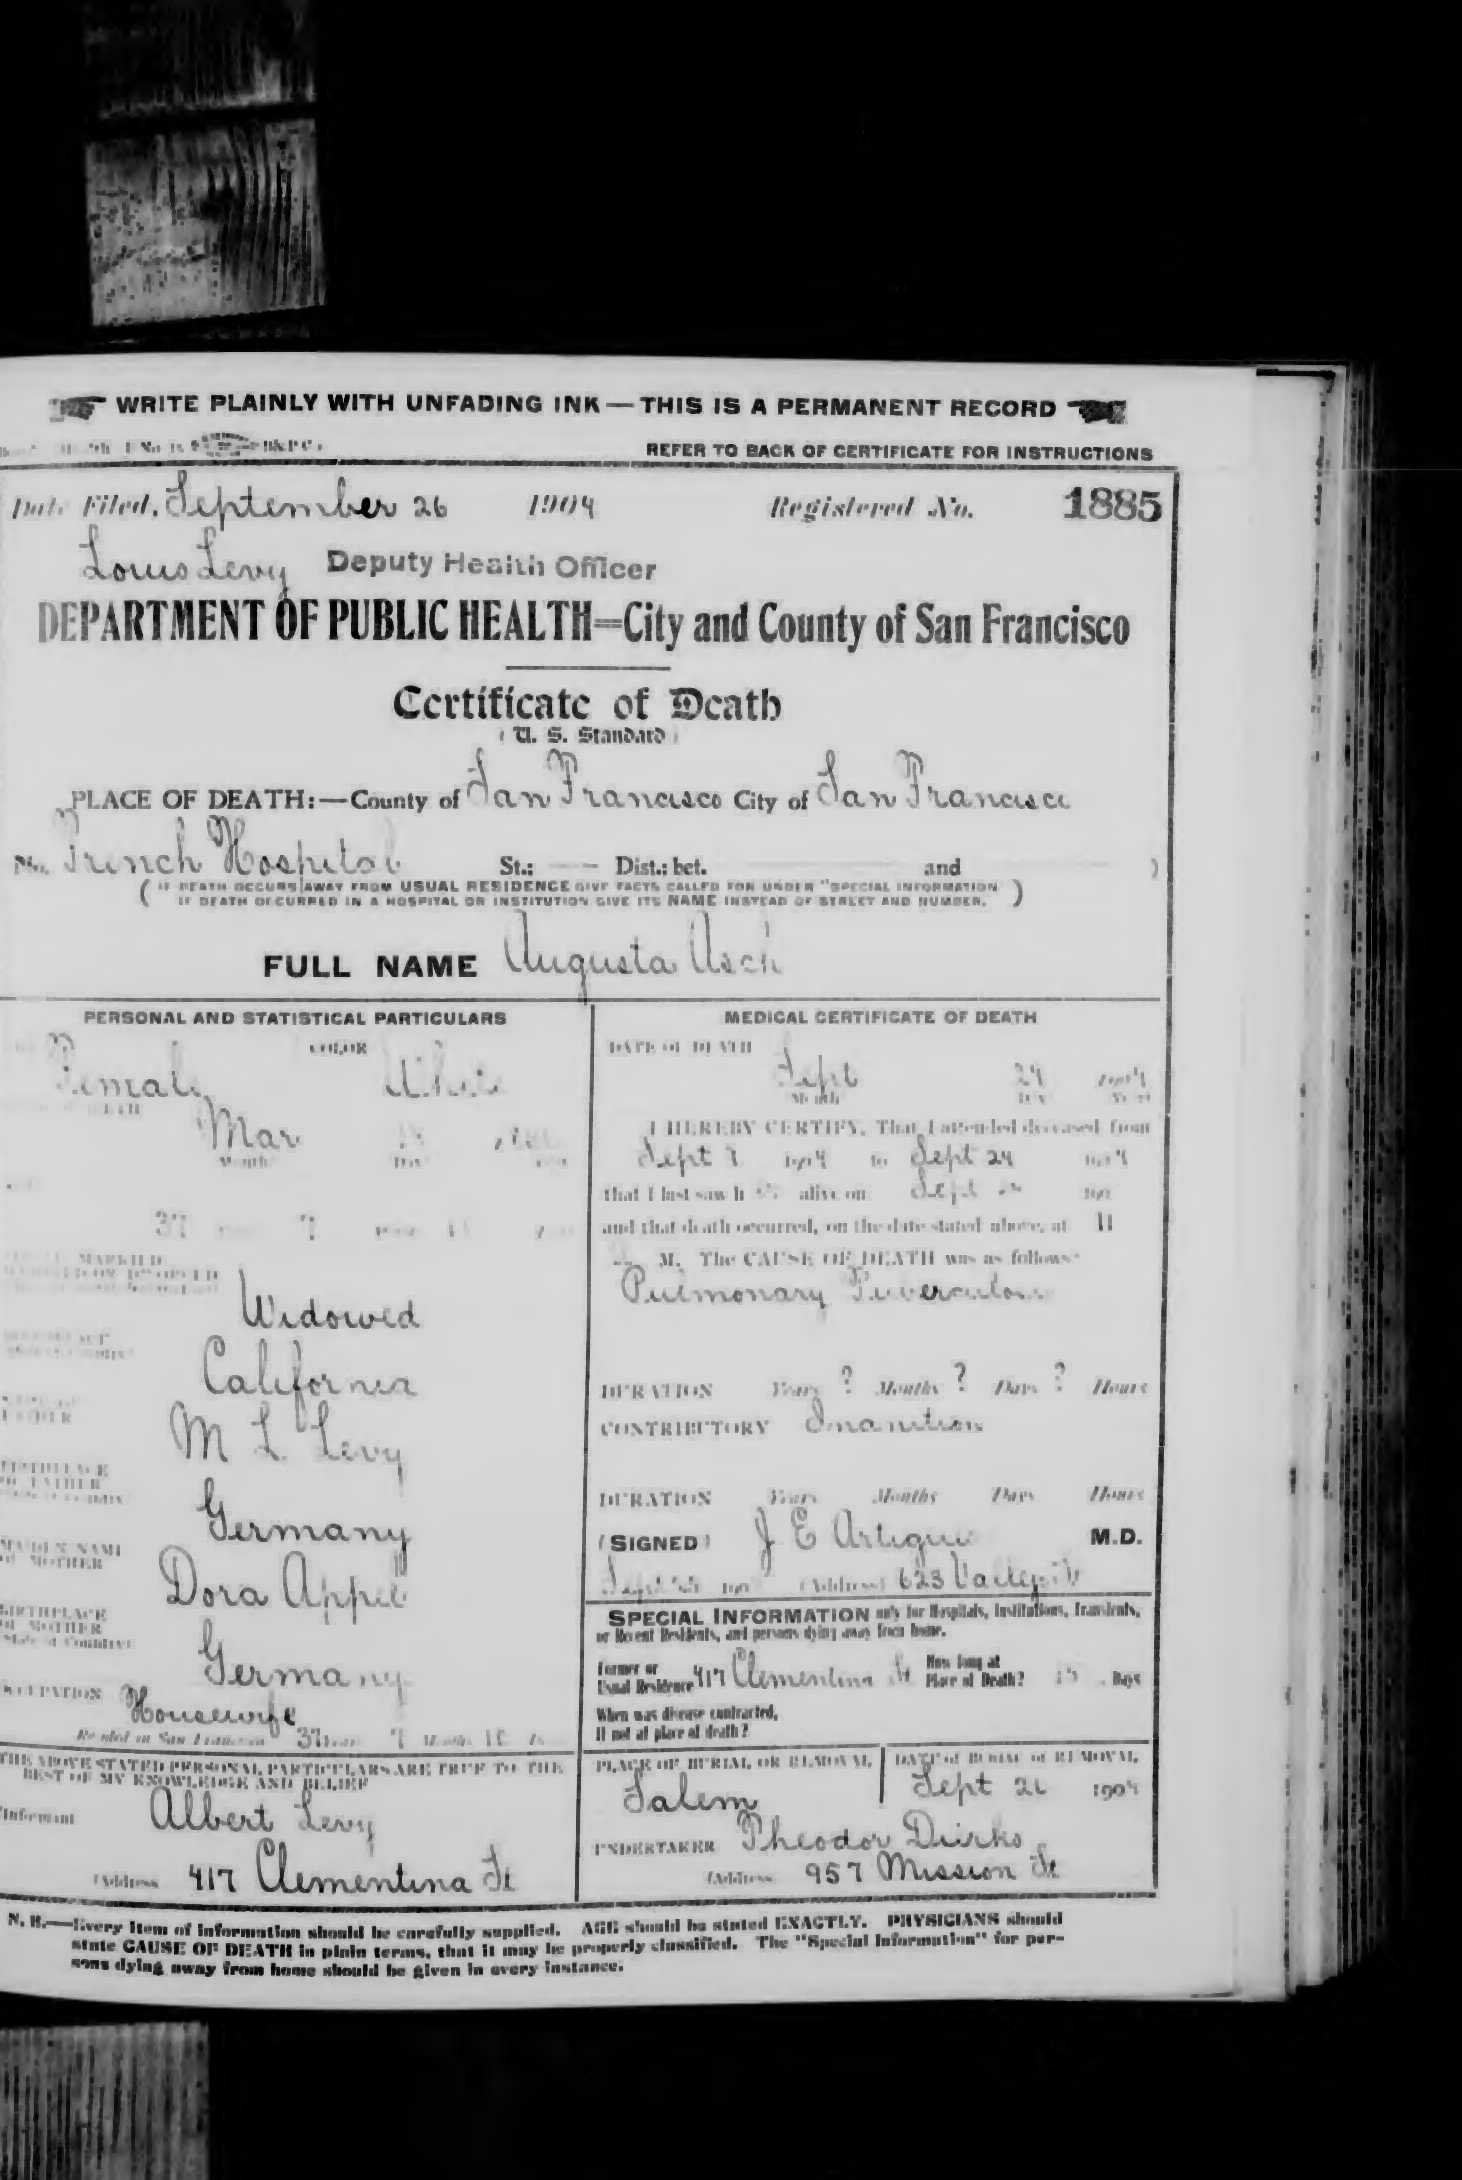 WRITE PLAINLY WITH UNFADING INK — THIS IS A PERMANENT RECORD
REFER TO BACK OF CERTIFICATE FOR INSTRUCTIONS
Date Filed, September 26 1904 Registered No. 1885
Louis Levy Deputy Health Officer
DEPARTMENT OF PUBLIC HEALTH=City and County of San Francisco
Certificate of Death
(U. S. Standard)
PLACE OF DEATH:—County of San Francisco City of San Francisco
No. French Hospital St.; — Dist.; bet. and )
( IF DEATH OCCURS AWAY FROM USUAL RESIDENCE GIVE FACTS CALLED FOR UNDER "SPECIAL INFORMATION )
IF DEATH OCCURRED IN A HOSPITAL OR INSTITUTION GIVE ITS NAME INSTEAD OF STREET AND NUMBER.
FULL NAME Augusta Asch
PERSONAL AND STATISTICAL PARTICULARS
COLOR
Female White
Mar
Month Day
37 7
MARRIED
WIDOWED OR DIVORCED
Widowed
California
FATHER
M L Levy
BIRTHPLACE
OF FATHER
Germany
MAIDEN NAME
OF MOTHER
Dora Appel
BIRTHPLACE
OF MOTHER
State or Country
Germany
OCCUPATION
Housewife
Resided in San Francisco 37 Years 7 Months
THE ABOVE STATED PERSONAL PARTICULARS ARE TRUE TO THE
BEST OF MY KNOWLEDGE AND BELIEF
Informant Albert Levy
(Address 417 Clementina St
MEDICAL CERTIFICATE OF DEATH
DATE OF DEATH
Sept 24 1904
Month Day Year
I HEREBY CERTIFY, That I attended deceased from
Sept 1904 to Sept 24 1904
that I last saw h alive on Sept 190
and that death occurred, on the date stated above, at 11
M. The CAUSE OF DEATH was as follows:
Pulmonary Tuberculosis
DURATION Years ? Months ? Days ? Hours
CONTRIBUTORY Inanition
DURATION Years Months Days Hours
(SIGNED) J E Artigues M.D.
Sept 190 (Address) 623 Vallejo St
SPECIAL INFORMATION only for Hospitals, Institutions, Transients,
or Recent Residents, and persons dying away from home.
Former or
Usual Residence 417 Clementina St
How long at
Place of Death? Days
When was disease contracted,
If not at place of death?
PLACE OF BURIAL OR REMOVAL
Salem
DATE of BURIAL or REMOVAL
Sept 26 1904
UNDERTAKER Theodor Dierks
(Address 957 Mission St
N. B.—Every item of information should be carefully supplied. AGE should be stated EXACTLY. PHYSICIANS should
state CAUSE OF DEATH in plain terms, that it may be properly classified. The "Special Information" for per-
sons dying away from home should be given in every instance.